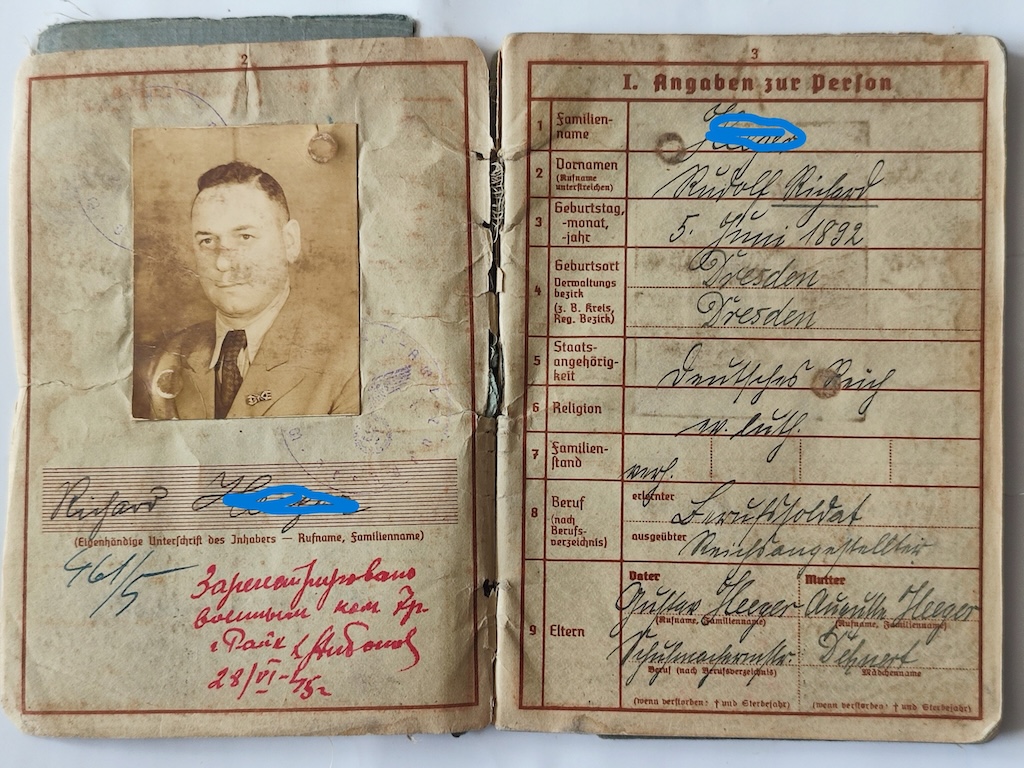 2
Richard
(Eigenhändige Unterschrift des Inhabers — Rufname, Familienname)
461/5
Зарегистрировано
военным ком
28/VI-45г
3
I. Angaben zur Person
1 Familien-
name
2 Vornamen
(Rufname
unterstreichen)
Rudolf Richard
3 Geburtstag,
-monat,
-jahr
5. Juni 1892
4 Geburtsort
Verwaltungs
bezirk
(z. B. Kreis,
Reg. Bezirk)
Dresden
Dresden
5 Staats-
angehörig-
keit
Deutsches Reich
6 Religion
ev. luth.
7 Familien-
stand
verh.
8 Beruf
(nach
Berufs-
verzeichnis)
erlernter
Berufssoldat
ausgeübter
Reichsangestellter
9 Eltern
Vater
Gustav Heeger
(Rufname, Familienname)
Schuhmachermstr.
Beruf (nach Berufsverzeichnis)
(wenn verstorben: † und Sterbejahr)
Mutter
Auguste Heeger
(Rufname, Familienname)
Dehnert
Mädchenname
(wenn verstorben: † und Sterbejahr)